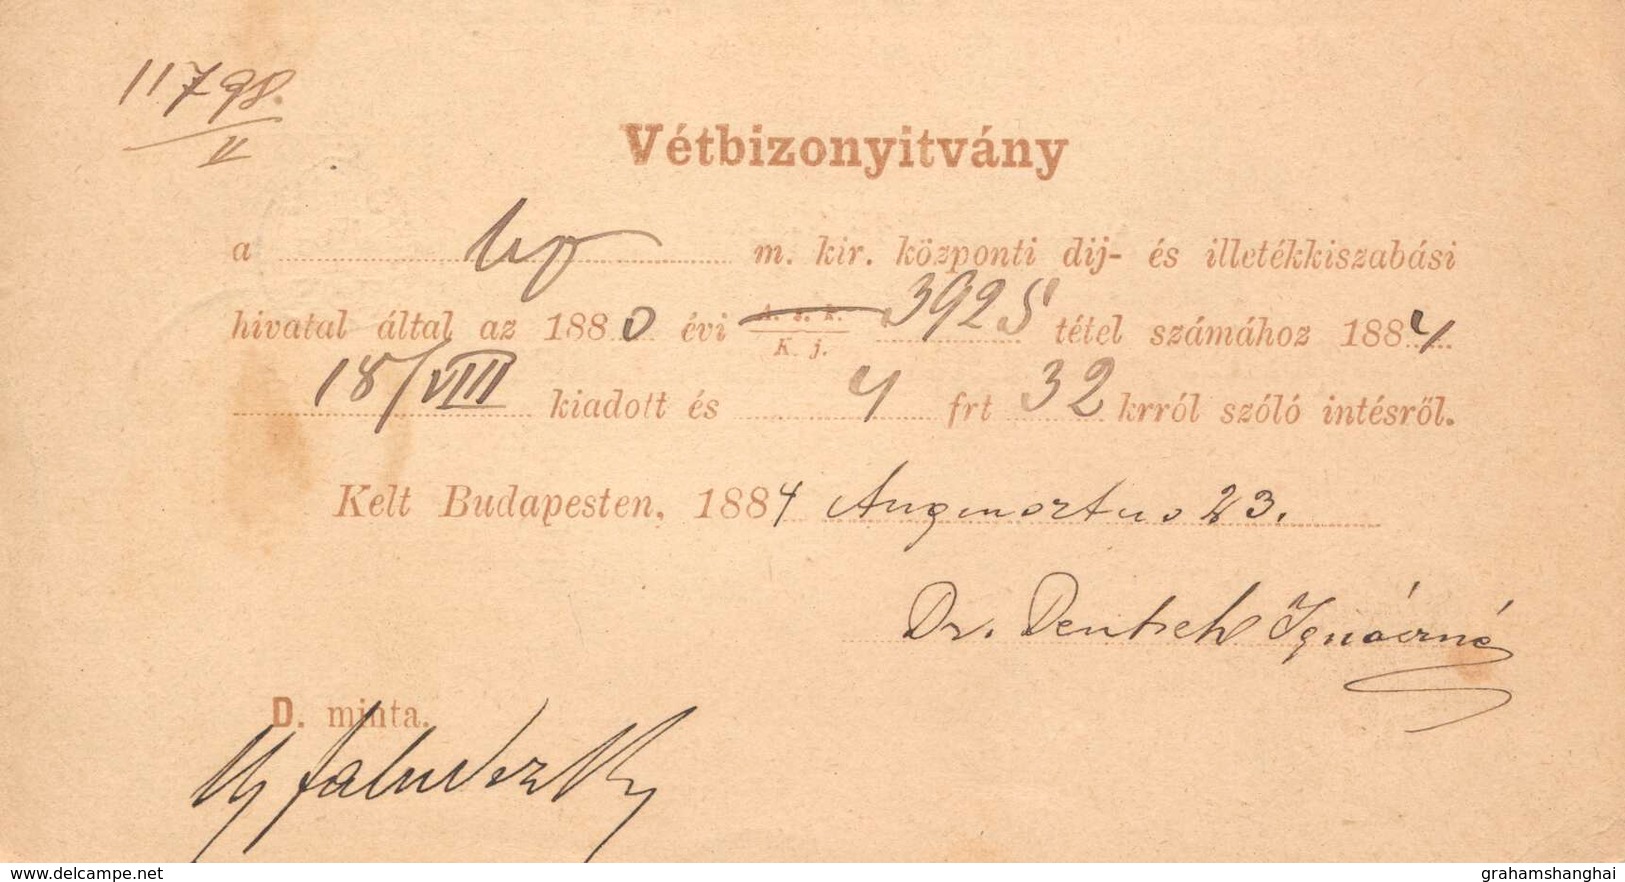 11798.
V
Vétbizonyitvány
a bp m. kir. központi dij- és illetékkiszabási
hivatal által az 1880 évi A. s. k. / K. j. 3925 tétel számához 1884
18/VIII kiadott és 4 frt 32 krról szóló intésről.
Kelt Budapesten, 1884 Augusztus 23.
Dr. Deutsch Ignáczné
D. minta.
Ujfaludszky
delcampe.net
grahamshanghai